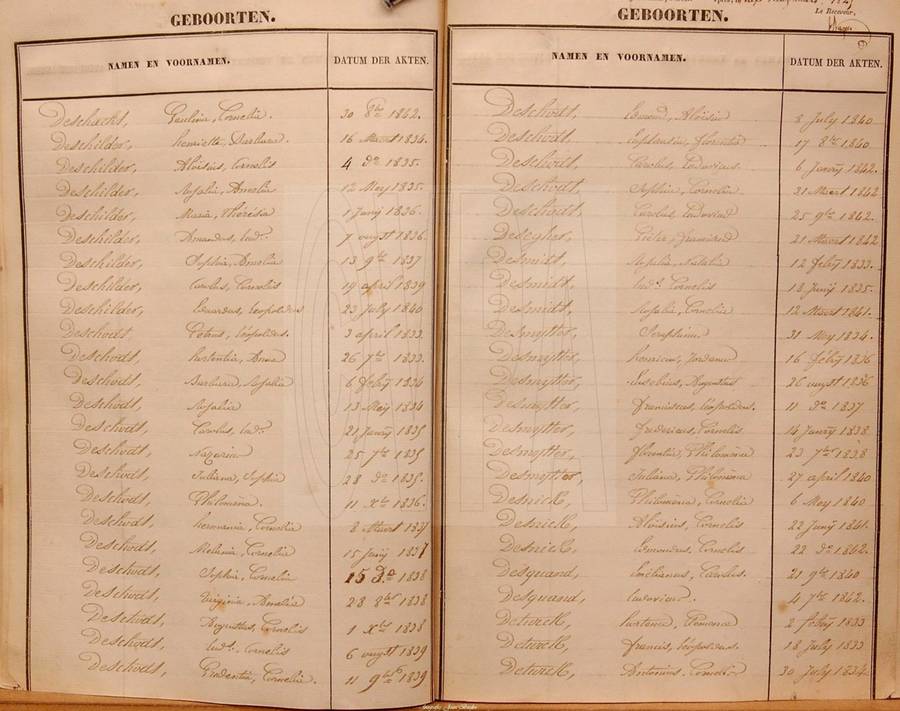 GEBOORTEN.
NAMEN EN VOORNAMEN. DATUM DER AKTEN.
Deschacht, Paulina, Cornelia. 30 8bre 1842.
Deschilder, henriette, Barbara. 16 Maart 1834.
Deschilder, Aloisius, Cornelis 4 do 1835.
Deschilder, Rosalia, Amelia 12 Mey 1835.
Deschilder, Maria, Thérésia 1 Junij 1836.
Deschilder, Amandus, Lud. 7 augst 1836.
Deschilder, Sophia, Amelia 13 9bre 1837
Deschilder, Carolus, Cornelis 19 april 1839
Deschilder, Eduardus, Leopoldus 23 July 1840
Deschodt Petrus, Léopoldus. 3 april 1833.
Deschodt, hortentia, Anna 26 7bre 1833.
Deschodt, Barbara, Rosalia 6 feby 1834
Deschodt, Rosalia 13 Meij 1834
Deschodt, Carolus, Lud. 21 Janry 1835
Deschodt, Nazarius 25 7bre 1835
Deschodt, Juliana, Sophia 28 do 1835.
Deschodt, Philomèna. 11 Xbre 1836.
Deschodt, hermania, Cornelia 8 Maart 1837
Deschodt, Melania, Cornelia 15 Junij 1837
Deschodt, Sophia, Cornelia 15 do 1838
Deschodt, Virginia, Amelia 28 8bre 1838
Deschodt, Augustus, Cornelis 1 Xbre 1838
Deschodt, Lud. Cornelis 6 augst 1839
Deschodt, Prudentia, Cornelia. 11 9bre 1839
Le Receveur,
GEBOORTEN.
NAMEN EN VOORNAMEN. DATUM DER AKTEN.
Deschodt, Edmond, Aloïsius 8 July 1840
Deschodt, Euphrasia, florentia 17 8bre 1840
Deschodt, Carolus, Ludovicus 6 Janry 1842.
Deschodt, Sophia, Cornelia 21 Maart 1842
Deschodt, Carolus, Ludovicus 25 9bre 1842.
Desegher, Pieter, francisco 21 Maart 1842
Desmidt, Rosalia, Natalia 12 feby 1833.
Desmidt, Lud. Cornelis 18 Junij 1835.
Desmidt, Rosalia, Cornelia 12 Maart 1841.
Desmytter, Seraphinus 31 Mey 1834.
Desmytter, henricus, 16 feby 1836
Desmytter, Eusebius, Augustus 26 augst 1836
Desmytter, franciscus, Leopoldus. 11 do 1837
Desmytter, fredericus, Cornelis 14 Janry 1838.
Desmytter, florentia, Philomena 23 7bre 1838
Desmytter, Juliana, Philomèna 27 april 1840
Desnick, Philomèna, Cornelia 6 Mey 1840
Desnick, Aloïsius, Cornelis 22 Junij 1841.
Desnick, Edmondus, Cornelis 22 do 1842.
Desquand, Emilianus, Carolus. 21 9bre 1840
Desquand, Ludovicus. 4 7bre 1842.
Detwelk, hortence, Clémence 2 feby 1833
Detwelk, francis, Léopoldus. 18 July 1833
Detwelk, Antonius, Cornelis 30 July 1834.